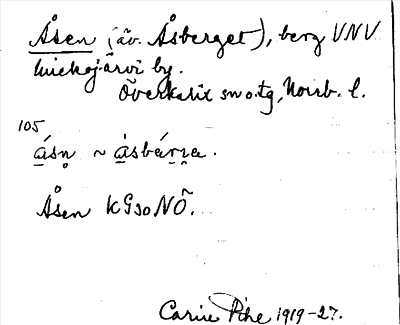 Åsen (äv. Åsberget), berg VNV
Miekojärvi by.
Överkalix sn o. tg, Norrb. l.
105
ásn̥ ~ ásbár̥r̥a.
Åsen KG 30 NÖ.
Carin Pihl 1919-27.